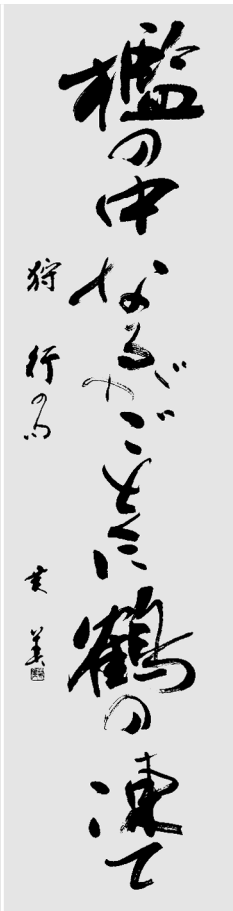 檻の中なるがごとくに鶴の凍て
狩行の句
美